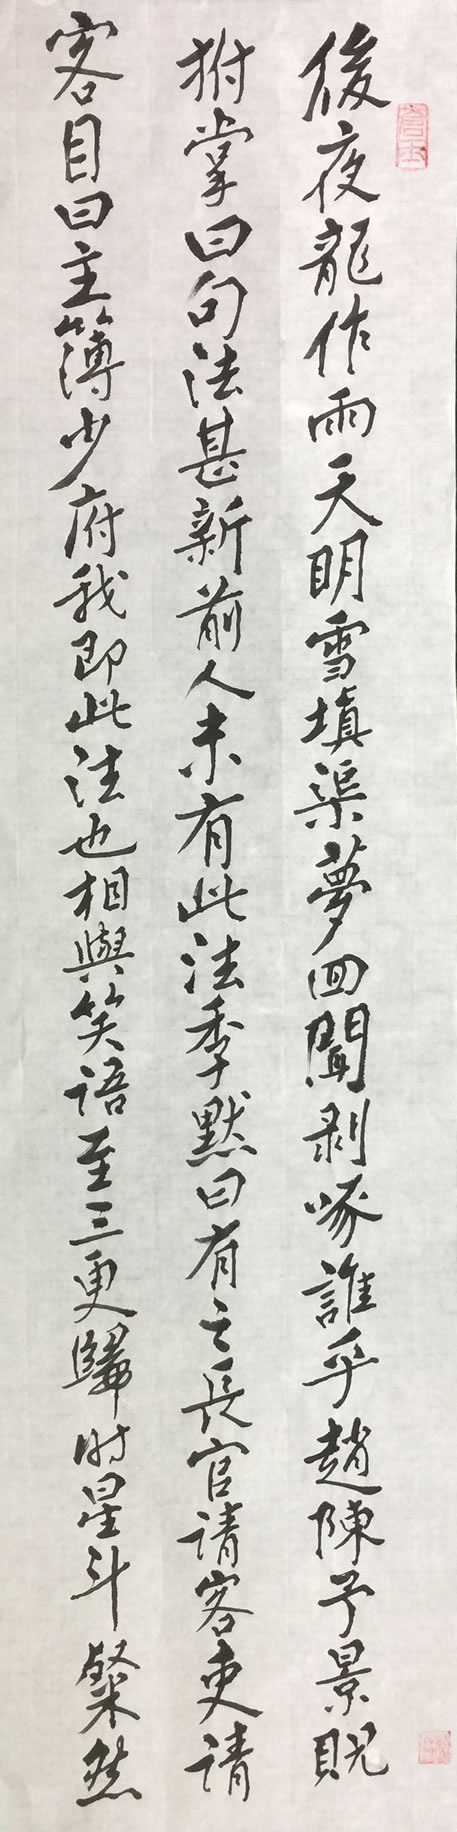 後夜龍作雨天明雪填渠夢回聞剥啄誰乎趙陳予景貺
拊掌曰句法甚新前人未有此法季默曰有之長官請客吏請
客目曰主簿少府我即此法也相與笑語至三更歸时星斗粲然